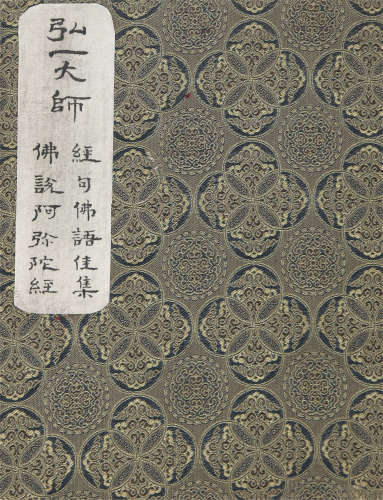 弘一大師
經句佛語佳集
佛說阿弥陀經